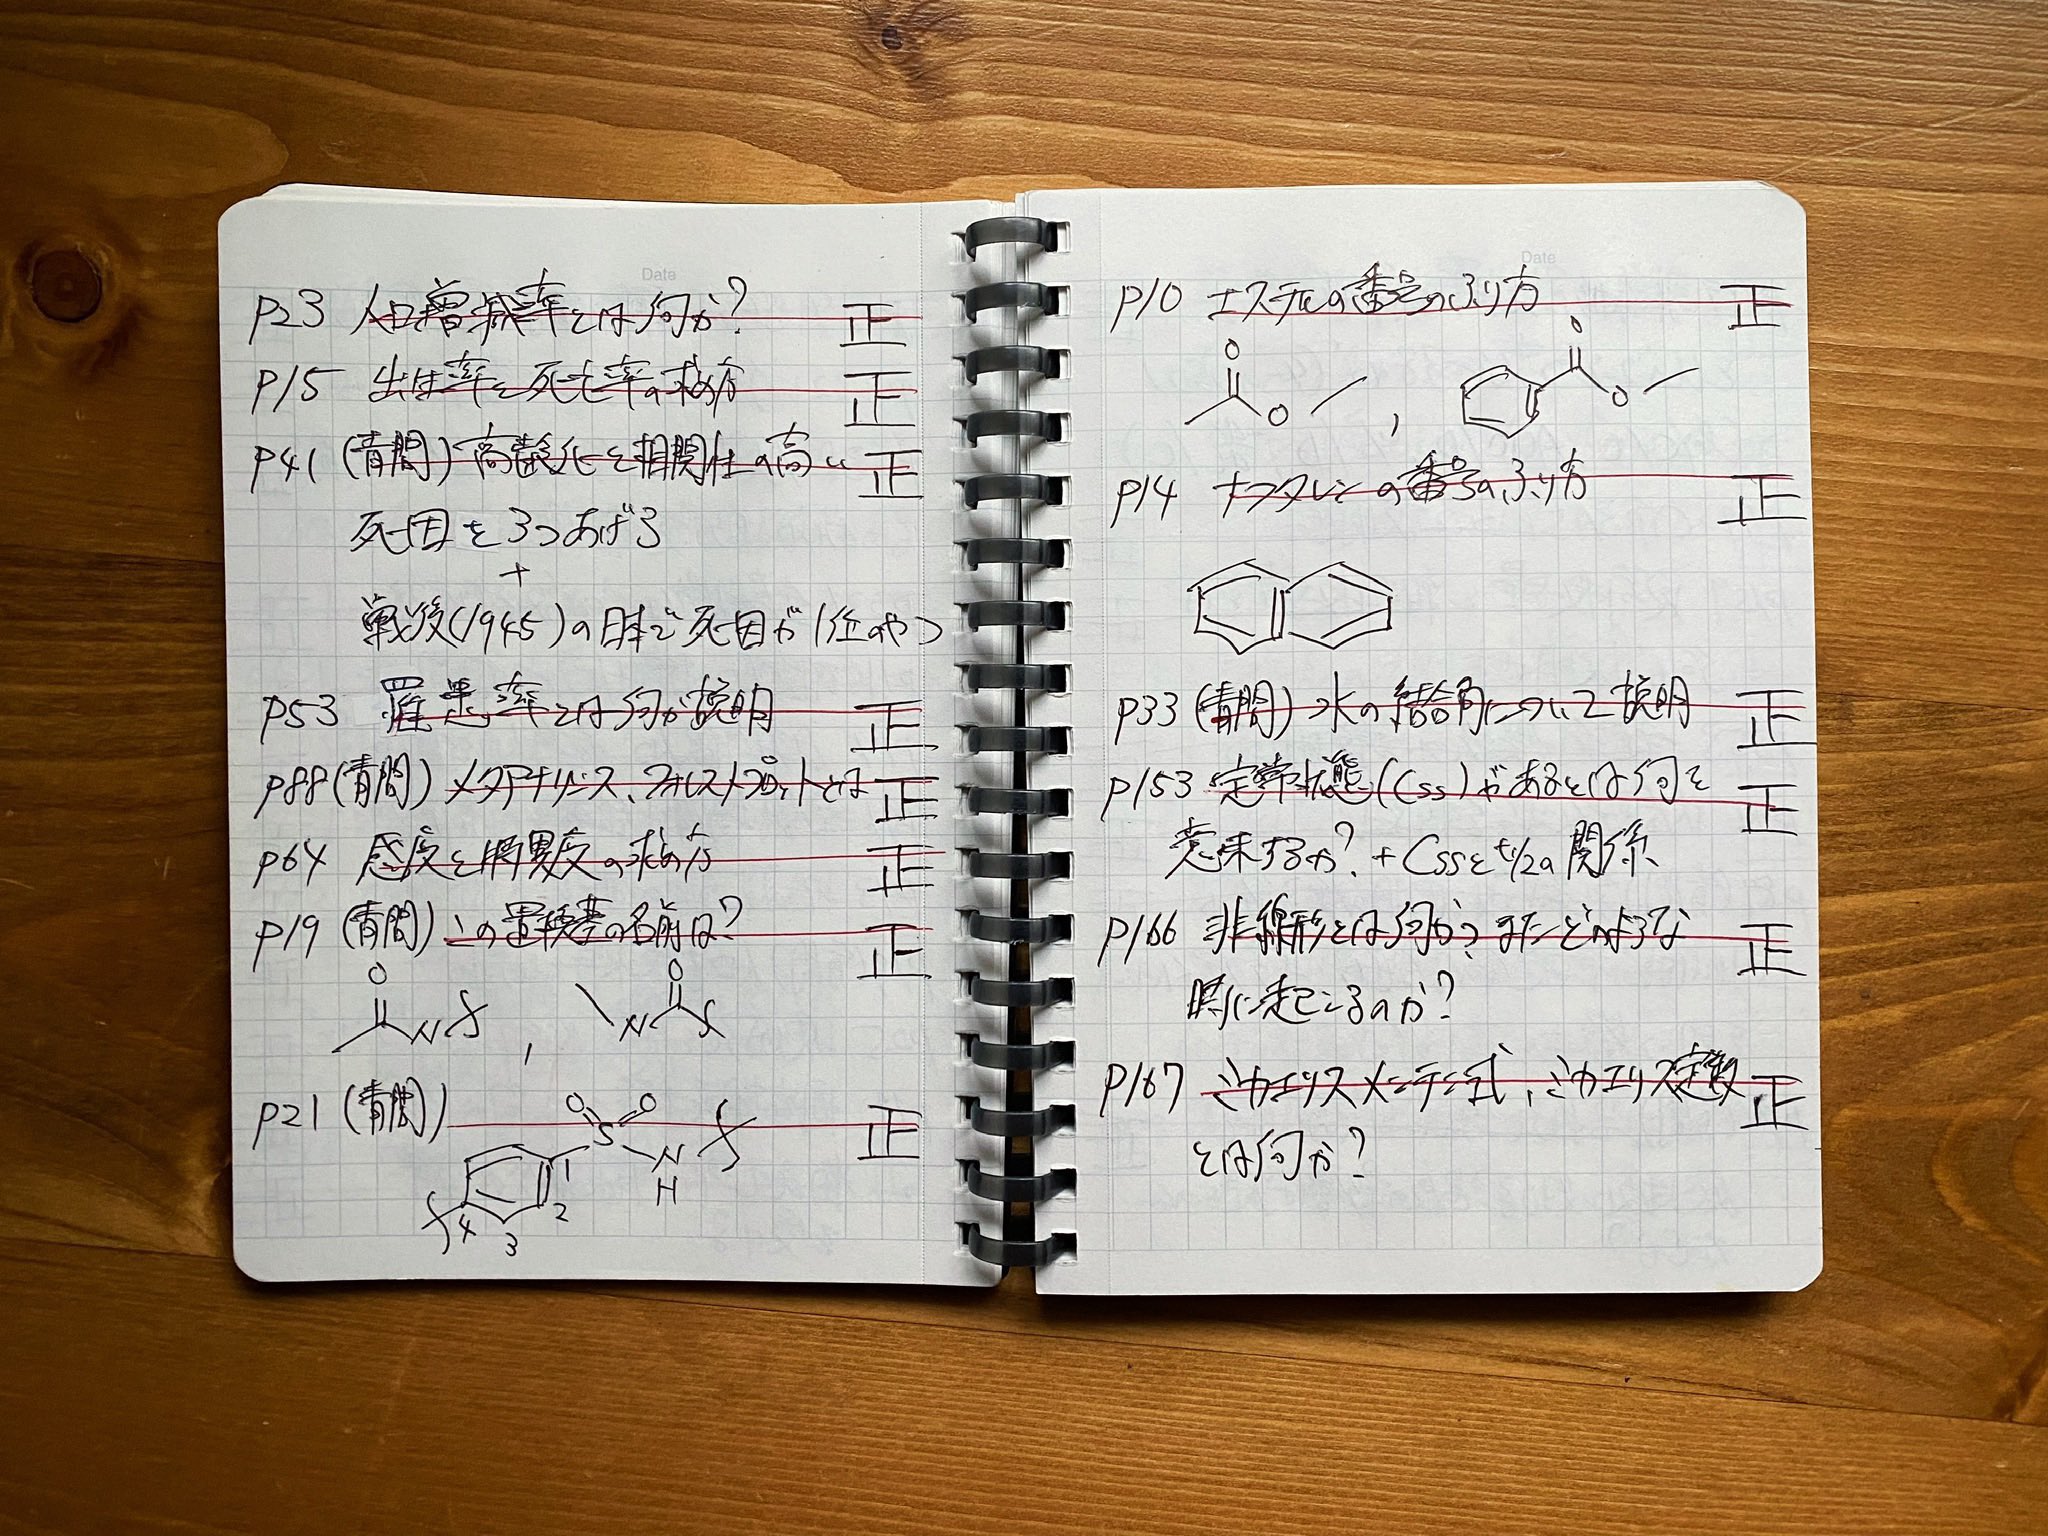 Date
p23 人口増減率とは何か? 正
p15 出生率と死亡率の求め方 正
p41 (青問) 高齢化と相関性の高い 正
死因を3つあげろ
+
戦後(1945)の日本で死因が1位のやつ
p53 罹患率とは何か説明 正
p88 (青問) メタアナリシス、フォレストプロットとは 正
p64 感度と特異度の求め方 正
p19 (青問) この置換基の名前は? 正
O
N
,
O
N
p21 (青問) 正
O S O
N
H
1
2
3
4
Date
p10 エステルの番号のふり方 正
O
O
,
O
O
p14 ナフタレンの番号のふり方 正
p33 (青問) 水の結合角について説明 正
p153 定常状態(Css)があるとは何を 正
意味するか? + Cssとt1/2の関係
p166 非線形とは何か? またどのような 正
時に起こるのか?
p167 ミカエリスメンテン式、ミカエリス定数 正
とは何か?